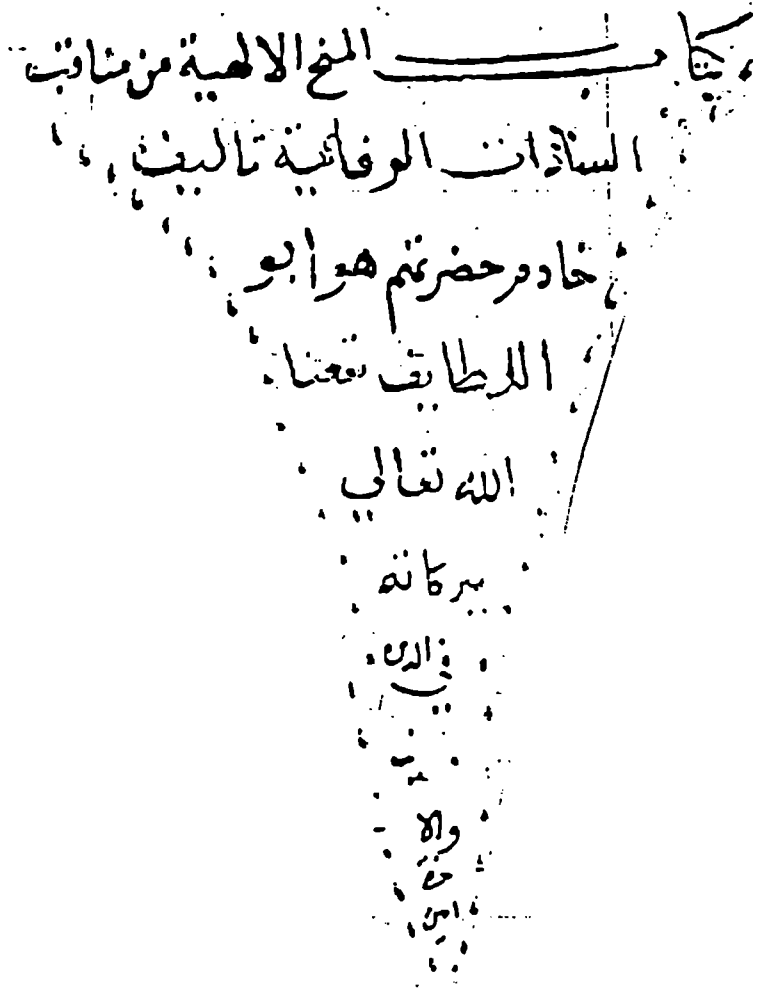 كتاب المنح الالهية من مناقب
السادات الوفائية تاليف
خادم حضرتهم هو ابو
اللطايف نفعنا
الله تعالي
ببركاته
في الدن
يا
والا
خرة
امين